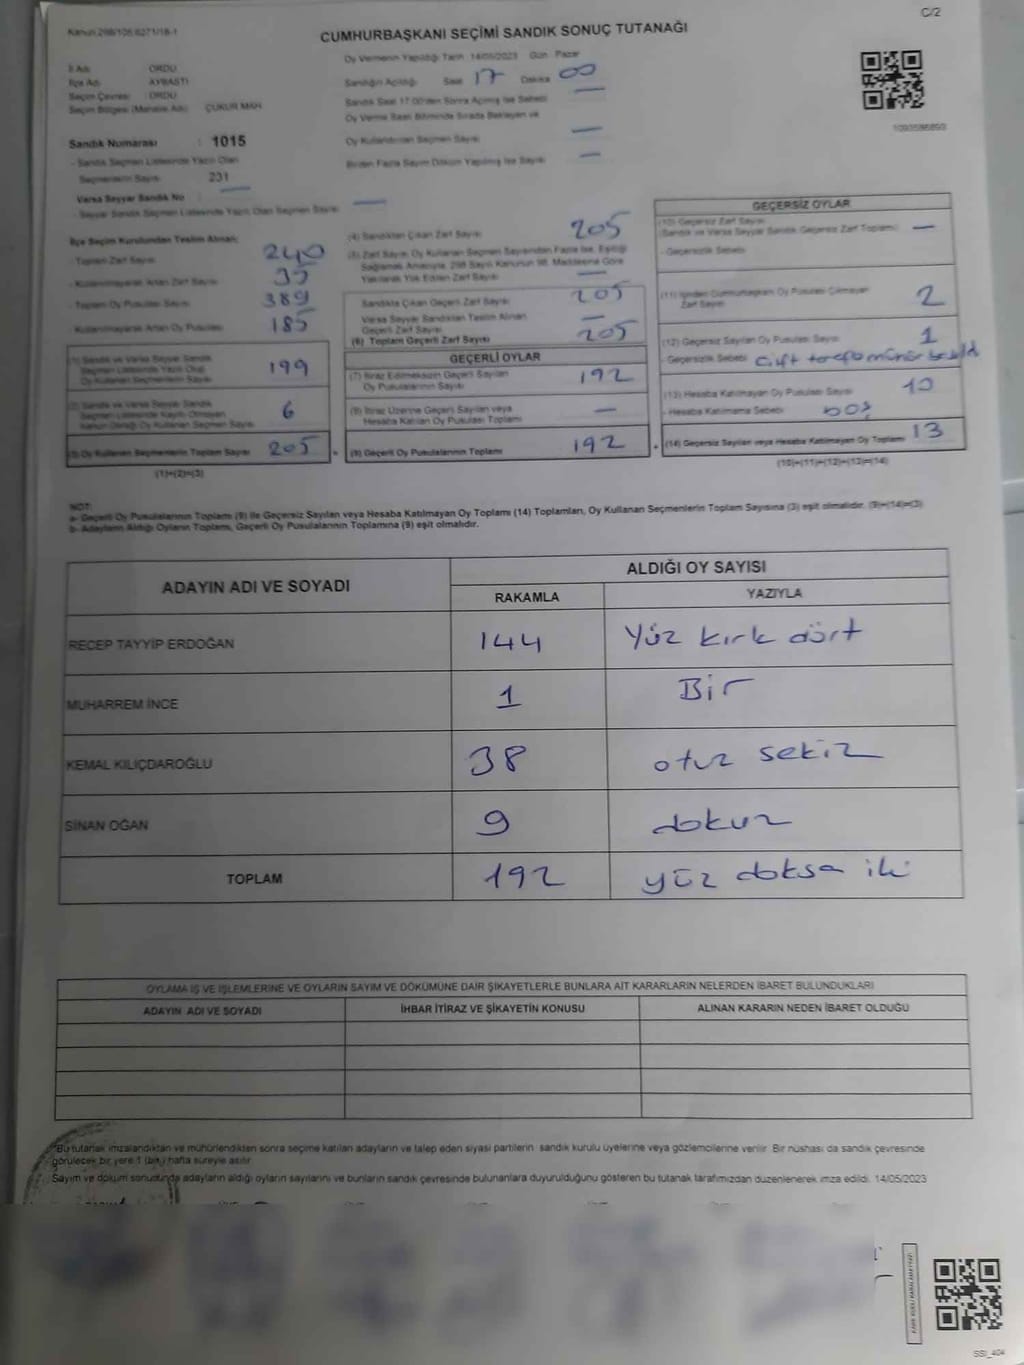 Kanun 298/105.6271/18-1
C/2
CUMHURBAŞKANI SEÇİMİ SANDIK SONUÇ TUTANAĞI
İl Adı ORDU
İlçe Adı AYBASTI
Seçim Çevresi ORDU
Seçim Bölgesi (Mahalle Adı) ÇUKUR MAH
Sandık Numarası : 1015
- Sandık Seçmen Listesinde Yazılı Olan
Seçmenlerin Sayısı 231
Varsa Seyyar Sandık No
- Seyyar Sandık Seçmen Listesinde Yazılı Olan Seçmen Sayısı
Oy Vermenin Yapıldığı Tarih : 14/05/2023 Gün : Pazar
Sandığın Açıldığı Saat 17 Dakika 00
Sandık Saat 17.00'den Sonra Açılmış İse Sebebi
Oy Verme Saati Bitiminde Sırada Bekleyen ve
Oy Kullandırılan Seçmen Sayısı
Birden Fazla Sayım Döküm Yapılmış İse Sayısı
1093586893
İlçe Seçim Kurulundan Teslim Alınan:
- Toplam Zarf Sayısı 240
- Kullanılmayarak Artan Zarf Sayısı 35
- Toplam Oy Pusulası Sayısı 389
- Kullanılmayarak Artan Oy Pusulası 185
(1) Sandık ve Varsa Seyyar Sandık
Seçmen Listesinde Yazılı Olup
Oy Kullanan Seçmenlerin Sayısı 199
(2) Sandık ve Varsa Seyyar Sandık
Seçmen Listesinde Kayıtlı Olmayan
Kanun Gereği Oy Kullanan Seçmen Sayısı 6
(3) Oy Kullanan Seçmenlerin Toplam Sayısı 205
(1)+(2)=(3)
(4) Sandıktan Çıkan Zarf Sayısı 205
(5) Zarf Sayısı Oy Kullanan Seçmen Sayısından Fazla İse, Eşitliği
Sağlamak Amacıyla, 298 Sayılı Kanunun 98. Maddesine Göre
Yakılarak Yok Edilen Zarf Sayısı
Sandıkta Çıkan Geçerli Zarf Sayısı 205
Varsa Seyyar Sandıktan Teslim Alınan
Geçerli Zarf Sayısı
(6) Toplam Geçerli Zarf Sayısı 205
GEÇERLİ OYLAR
(7) İtiraz Edilmeksizin Geçerli Sayılan
Oy Pusulalarının Sayısı 192
(8) İtiraz Üzerine Geçerli Sayılan veya
Hesaba Katılan Oy Pusulası Toplamı
(9) Geçerli Oy Pusulalarının Toplamı 192
GEÇERSİZ OYLAR
(10) Geçersiz Zarf Sayısı
(Sandık ve Varsa Seyyar Sandık Geçersiz Zarf Toplamı)
- Geçersizlik Sebebi
(11) İçinden Cumhurbaşkanı Oy Pusulası Çıkmayan
Zarf Sayısı 2
(12) Geçersiz Sayılan Oy Pusulası Sayısı 1
- Geçersizlik Sebebi Çift tarafa mühür
(13) Hesaba Katılmayan Oy Pusulası Sayısı 10
- Hesaba Katılmama Sebebi boş
(14) Geçersiz Sayılan veya Hesaba Katılmayan Oy Toplamı 13
(10)+(11)+(12)+(13)=(14)
NOT:
a- Geçerli Oy Pusulalarının Toplamı (9) ile Geçersiz Sayılan veya Hesaba Katılmayan Oy Toplamı (14) Toplamları, Oy Kullanan Seçmenlerin Toplam Sayısına (3) eşit olmalıdır. (9)+(14)=(3)
b- Adayların Aldığı Oyların Toplamı, Geçerli Oy Pusulalarının Toplamına (9) eşit olmalıdır.
ADAYIN ADI VE SOYADI
ALDIĞI OY SAYISI
RAKAMLA YAZIYLA
RECEP TAYYİP ERDOĞAN 144 Yüz kırk dört
MUHARREM İNCE 1 Bir
KEMAL KILIÇDAROĞLU 38 otuz sekiz
SİNAN OĞAN 9 dokuz
TOPLAM 192 yüz doksa iki
OYLAMA İŞ VE İŞLEMLERİNE VE OYLARIN SAYIM VE DÖKÜMÜNE DAİR ŞİKAYETLERLE BUNLARA AİT KARARLARIN NELERDEN İBARET BULUNDUKLARI
ADAYIN ADI VE SOYADI İHBAR İTİRAZ VE ŞİKAYETİN KONUSU ALINAN KARARIN NEDEN İBARET OLDUĞU
*Bu tutanak imzalandıktan ve mühürlendikten sonra seçime katılan adayların ve talep eden siyasi partilerin sandık kurulu üyelerine veya gözlemcilerine verilir. Bir nüshası da sandık çevresinde
görülecek bir yere 1 (bir) hafta süreyle asılır.
Sayım ve döküm sonucunda adayların aldığı oyların sayılarını ve bunların sandık çevresinde bulunanlara duyurulduğunu gösteren bu tutanak tarafımızdan düzenlenerek imza edildi. 14/05/2023
SSI_404